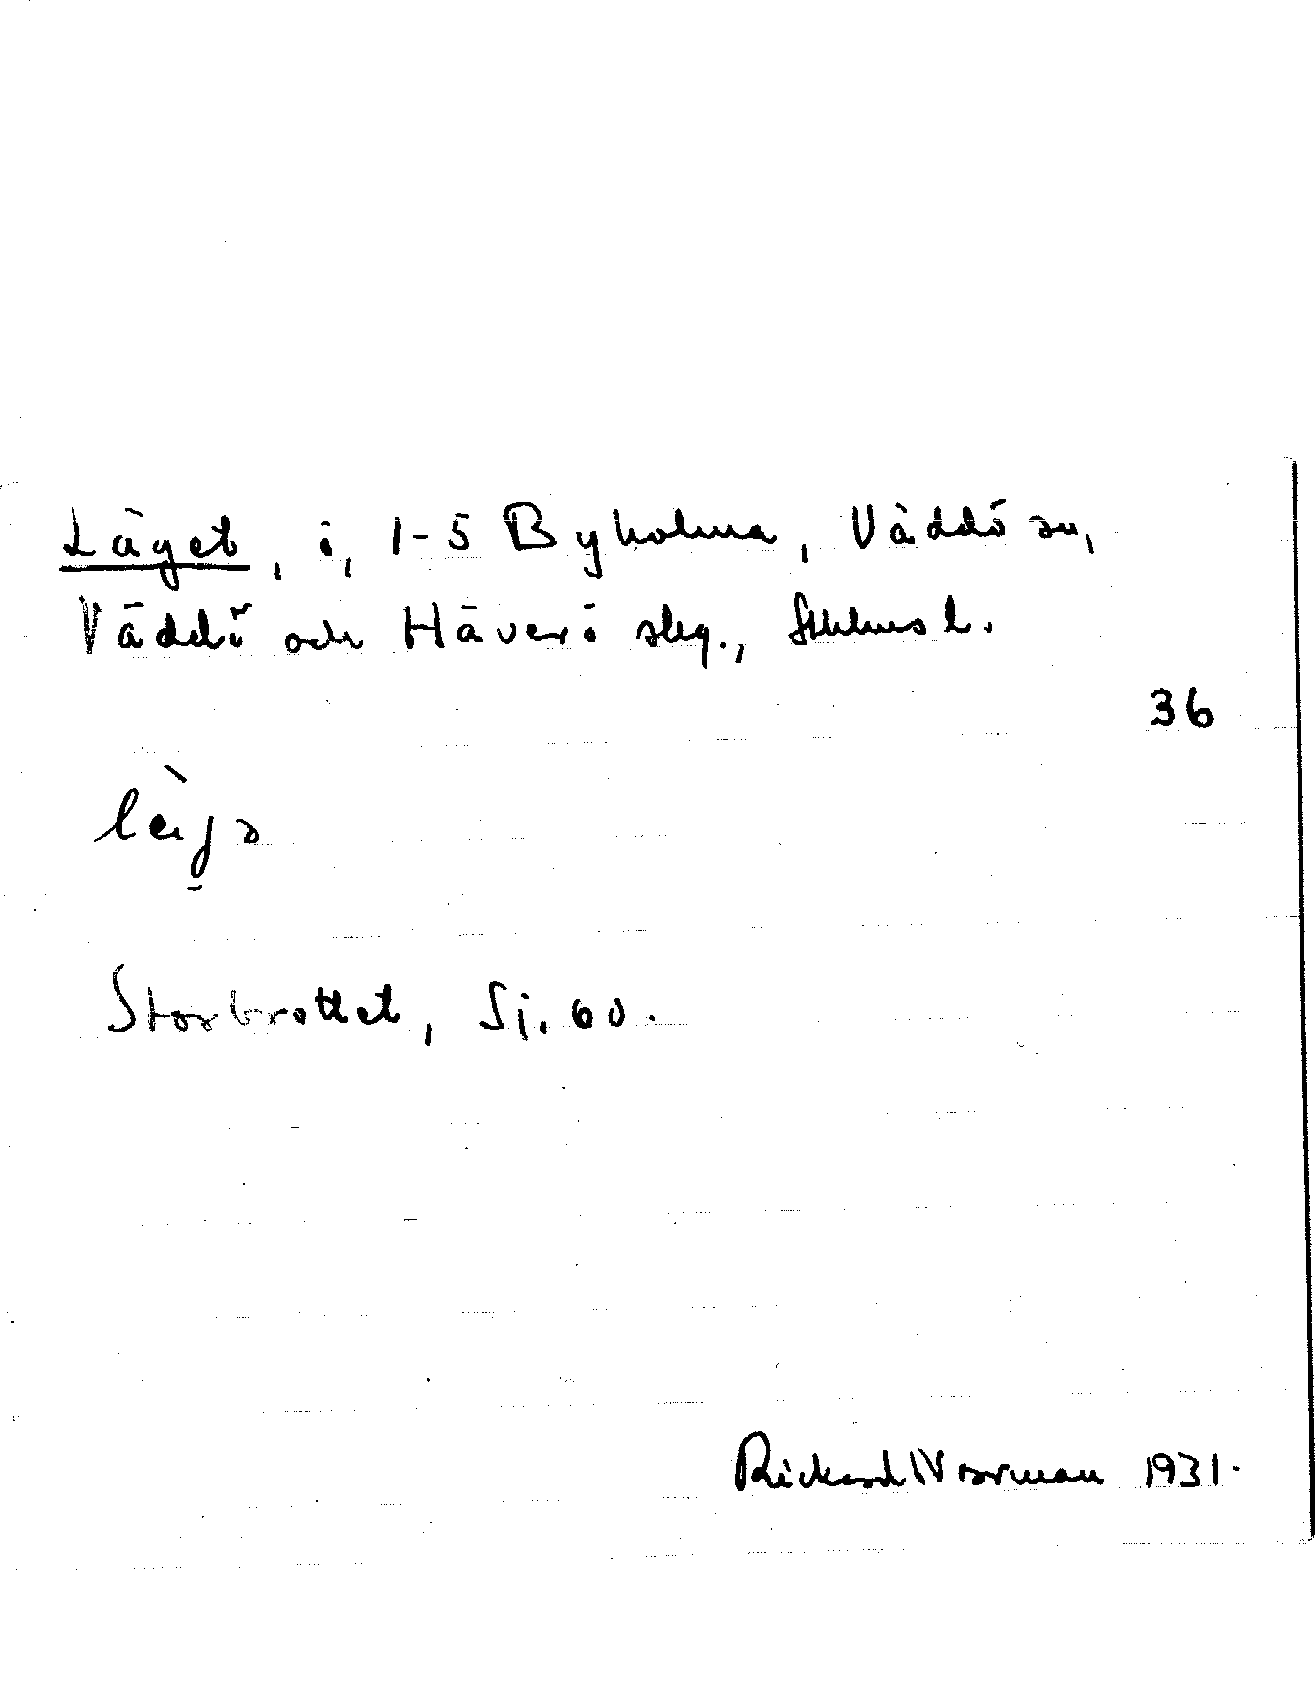 Läget, i, 1-5 Byholma, Väddö sn,
Väddö och Häverö skg., Sthlms l.
36
Storbrottet, Sj. 60.
Rickard Norman 1931.